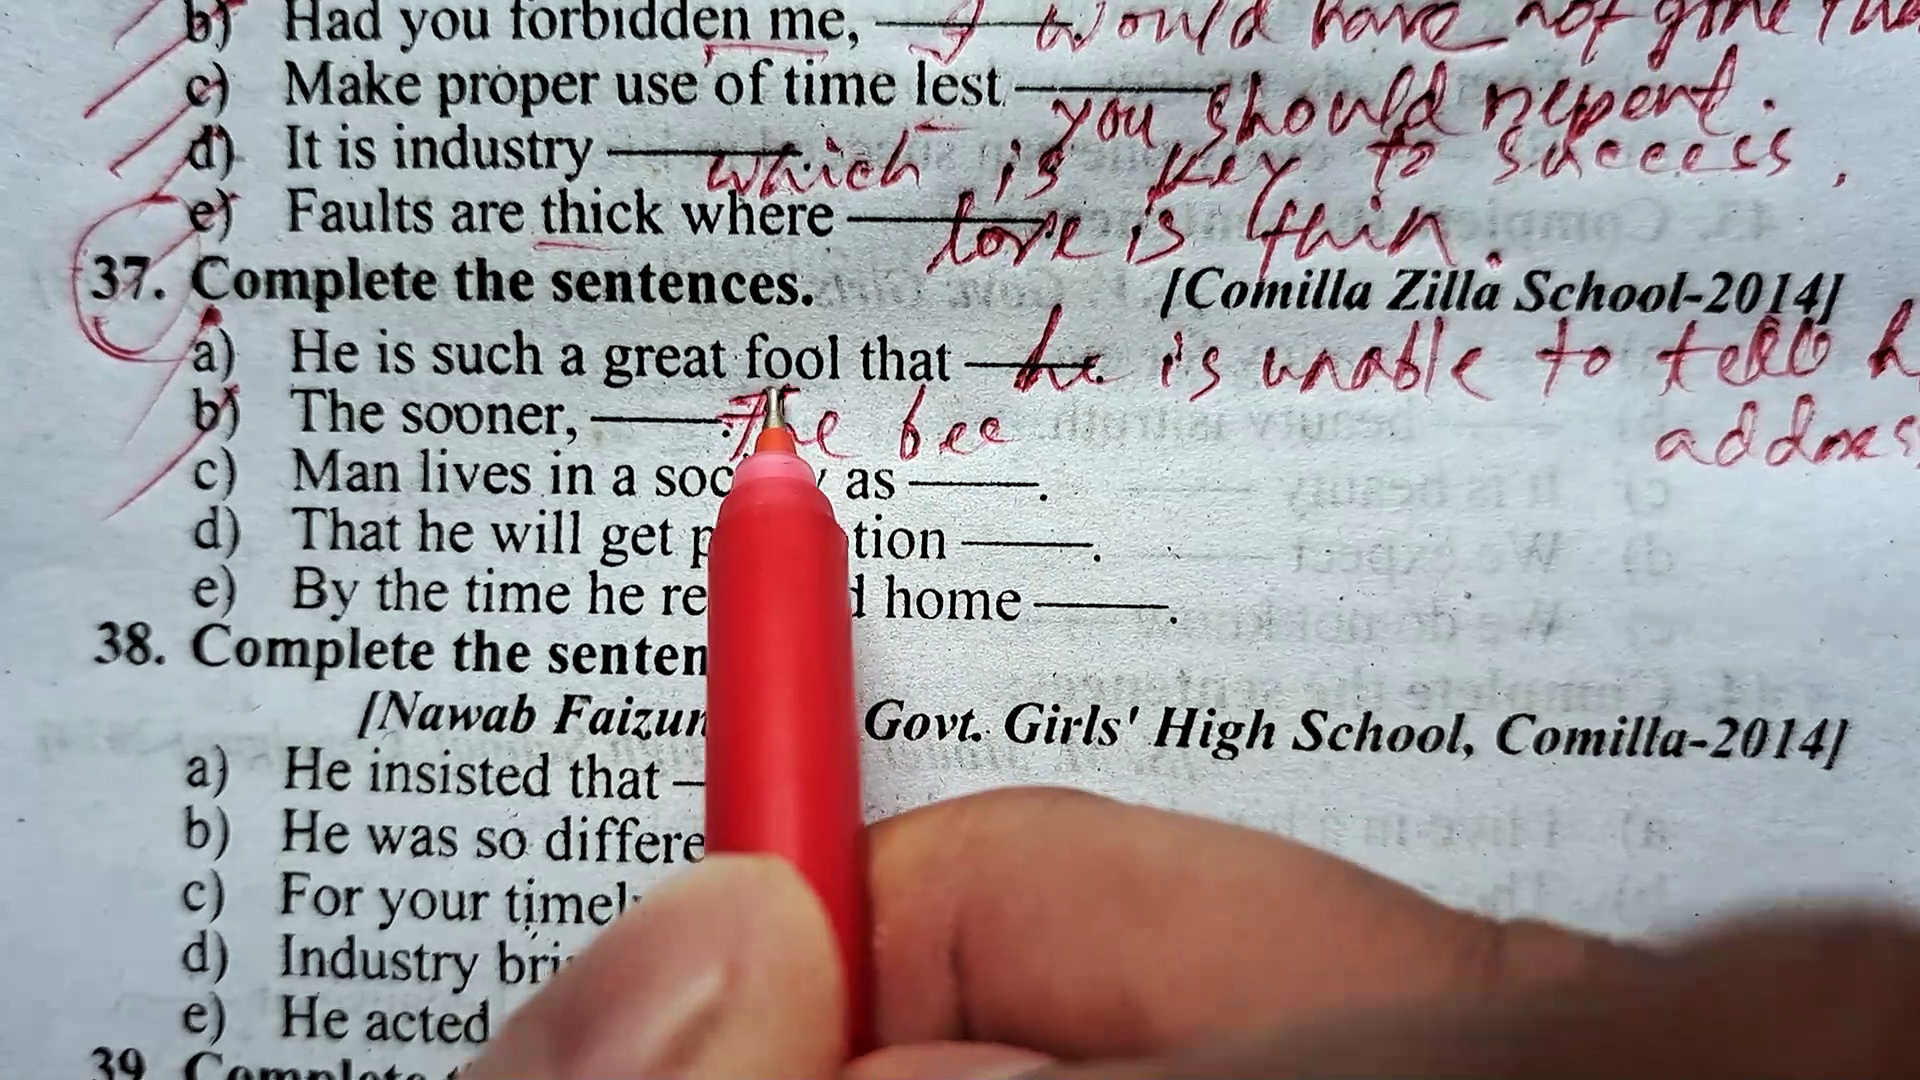 b) Had you forbidden me, I would have not gone
c) Make proper use of time lest you should repent.
d) It is industry which is key to success,
e) Faults are thick where love is thin.
37. Complete the sentences. [Comilla Zilla School-2014]
a) He is such a great fool that he is unable to tell
b) The sooner, The
c) Man lives in a as
d) That he will get
e) By the time he home
38. Complete the
[Nawab Govt. Girls' High School, Comilla-2014]
a) He insisted that
b) He was so
c) For your
d) Industry
e) He acted
39.